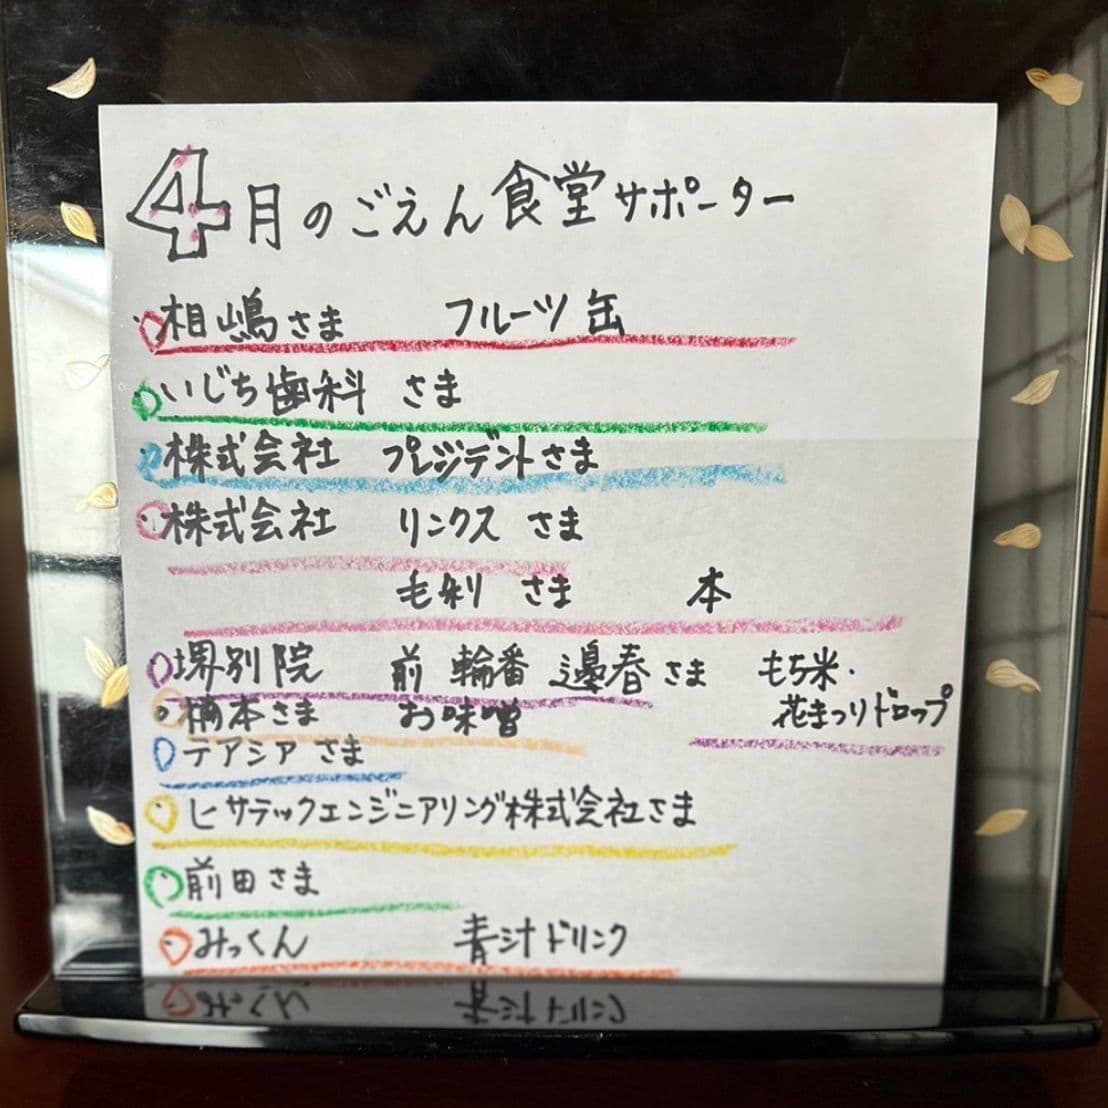 4月のごえん食堂サポーター
相嶋さま フルーツ缶
いじち歯科 さま
株式会社 プレジデントさま
株式会社 リンクス さま
毛利 さま 本
堺別院 前 輪番 邊春さま もち米・
花まつりドロップ
楠本さま お味噌
テアシア さま
ヒサテックエンジニアリング株式会社さま
前田さま
みっくん 青汁ドリンク